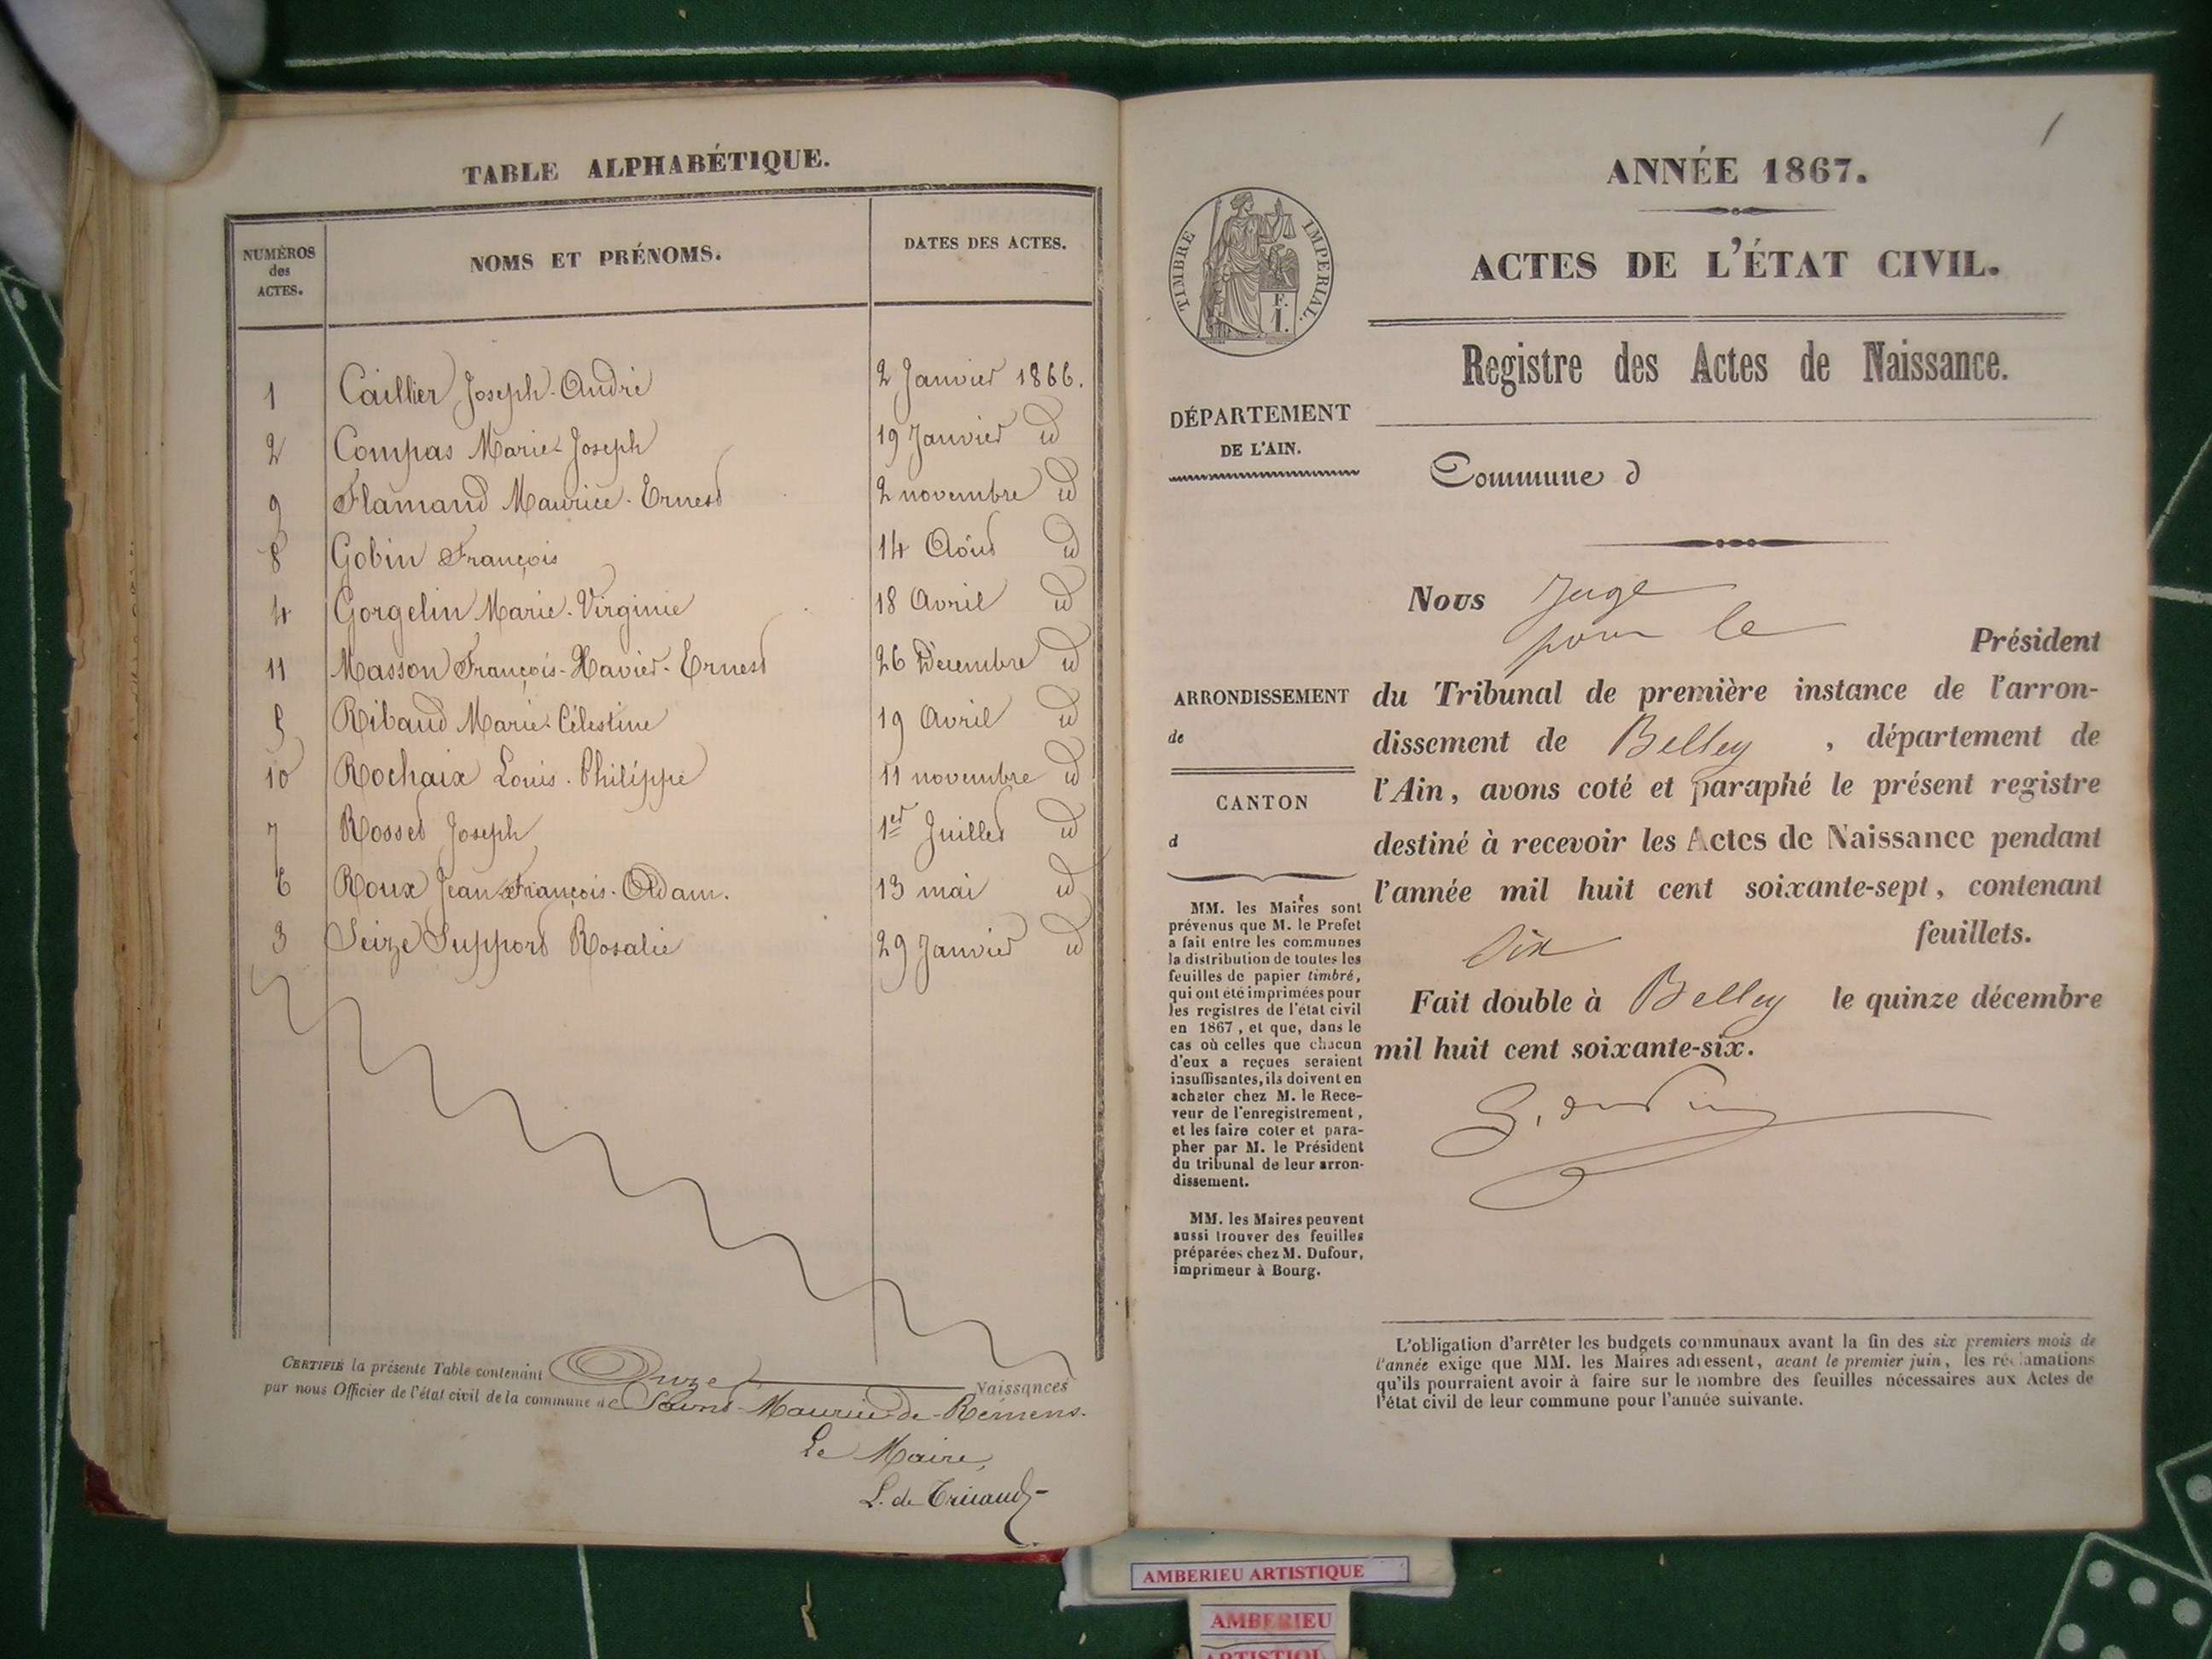 TABLE ALPHABÉTIQUE.
NUMÉROS des ACTES.
NOMS ET PRÉNOMS.
DATES DES ACTES.
1 Caillier Joseph-André 2 Janvier 1866.
2 Compas Marie-Joseph 19 Janvier id
9 Flamand Maurice-Ernest 2 novembre id
8 Gobin François 14 Août id
4 Gorgelin Marie-Virginie 18 Avril id
11 Masson François-Xavier-Ernest 26 Décembre id
5 Ribaud Marie-Célestine 19 Avril id
10 Rochaix Louis-Philippe 11 novembre id
7 Rosset Joseph 1er Juillet id
6 Roux Jean-François-Adam. 13 mai id
3 Seize Support Rosalie 29 Janvier id
CERTIFIÉ la présente Table contenant Onze Naissances
par nous Officier de l'état civil de la commune de Saint-Maurice-de-Rémens.
Le Maire,
L. de Tricaud
1
ANNÉE 1867.
ACTES DE L'ÉTAT CIVIL.
TIMBRE IMPERIAL.
F.
1.
Registre des Actes de Naissance.
DÉPARTEMENT
DE L'AIN.
Commune d
Nous Juge
pour le
Président
ARRONDISSEMENT
de
CANTON
d
du Tribunal de première instance de l'arron-
dissement de Belley , département de
l'Ain, avons coté et paraphé le présent registre
destiné à recevoir les Actes de Naissance pendant
l'année mil huit cent soixante-sept, contenant
six feuillets.
Fait double à Belley le quinze décembre
mil huit cent soixante-six.
MM. les Maires sont
prévenus que M. le Prefet
a fait entre les communes
la distribution de toutes les
feuilles de papier timbré,
qui ont été imprimées pour
les registres de l'état civil
en 1867, et que, dans le
cas où celles que chacun
d'eux a reçues seraient
insuffisantes, ils doivent en
acheter chez M. le Rece-
veur de l'enregistrement,
et les faire coter et para-
pher par M. le Président
du tribunal de leur arron-
dissement.
MM. les Maires peuvent
aussi trouver des feuilles
préparées chez M. Dufour,
imprimeur à Bourg.
L'obligation d'arrêter les budgets communaux avant la fin des six premiers mois de
l'année exige que MM. les Maires adressent, avant le premier juin, les réclamations
qu'ils pourraient avoir à faire sur le nombre des feuilles nécessaires aux Actes de
l'état civil de leur commune pour l'année suivante.
AMBERIEU ARTISTIQUE
AMBERIEU
ARTISTIQU